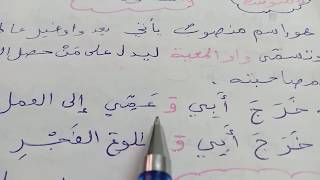 هو اسم منصوب يأتي بعد واو غير عا
وتسمى واو المعية ليدل على من حصل ال
مصاحبته .
خَرَجَ أَبِي وَ عَمِّي إلى العمل
خَرَجَ أَبِي وَ طلوعَ الفَجْرِ